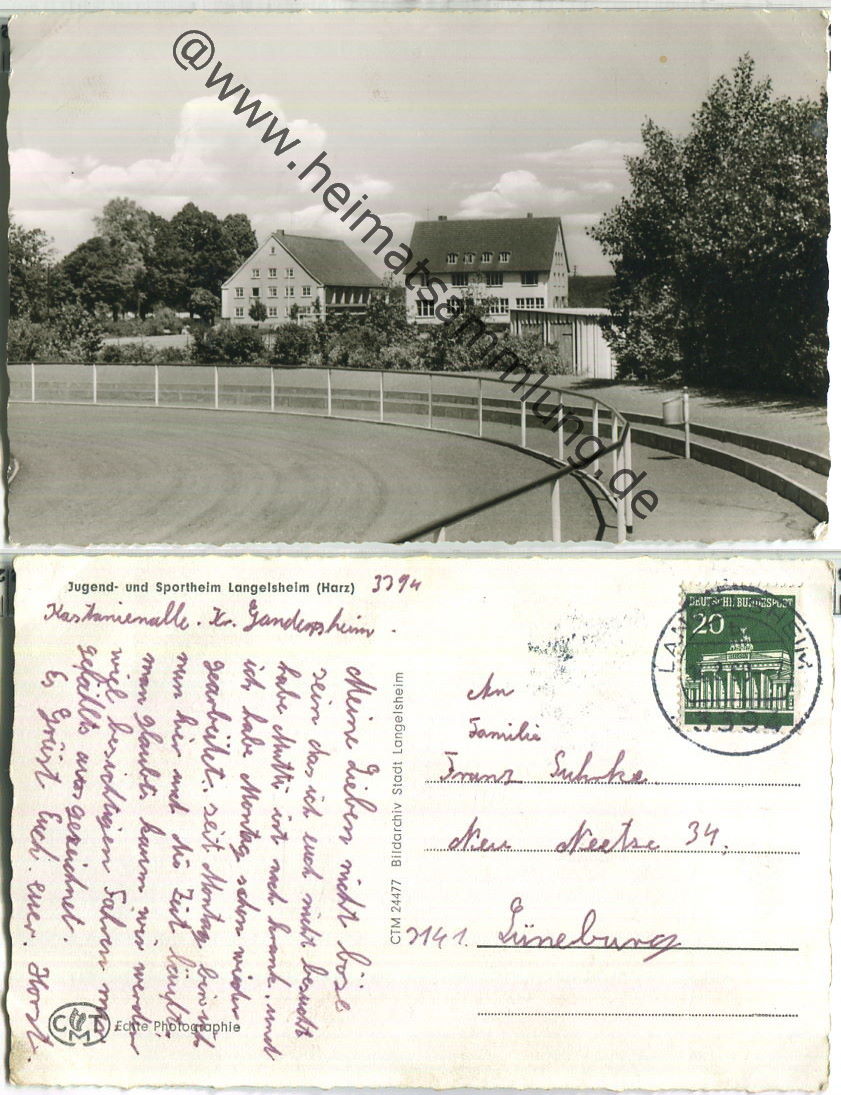 @www.heimatsammlung.de
Jugend- und Sportheim Langelsheim (Harz) 3394
Kastanienalle. Kr. Gandersheim.
Meine Lieben nicht böse
sein das ich euch nicht besucht
habe Mutti ist noch krank. und
ich habe Montag schon wieder
gearbeitet. seit Montag bin ich
nun hier und die Zeit läuft
man glaubt kaum wir werden
viel besichtigen Fahren
gefällts ausgezeichnet.
Es Grüst Euch. euer. Horst.
CTM
Echte Photographie
CTM 24477 Bildarchiv Stadt Langelsheim
DEUTSCHE BUNDESPOST
20
3394
An
Familie
Franz Suhrke
Neu Neetze 34.
3141. Lüneburg